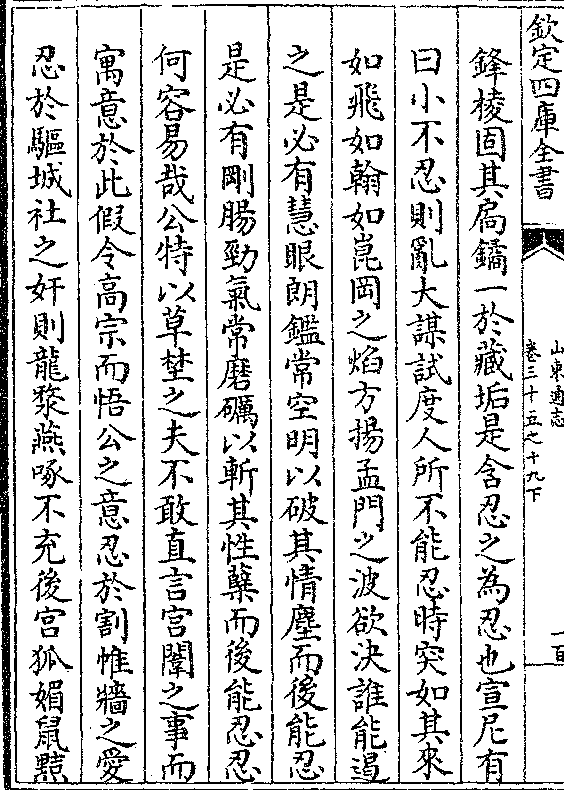 欽定四庫全書
山東通志
卷三十五之十九下
一百
鋒稜固其扃鐍一於藏垢是含忍之為忍也宣尼有
曰小不忍則亂大謀試度人所不能忍時突如其來
如飛如翰如崑岡之焰方揚孟門之波欲決誰能遏
之是必有慧眼朗鑑常空明以破其情塵而後能忍
是必有剛腸勁氣常磨礪以斬其性蘖而後能忍忍
何容易哉公特以草埜之夫不敢直言宫闈之事而
寓意於此假令高宗而悟公之意忍於割帷牆之愛
忍於驅城社之奸則龍漦燕啄不充後宫狐媚鼠黠